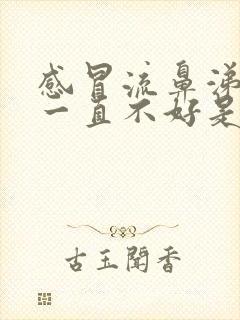 感冒流鼻涕
一直不好是
古玉闻香